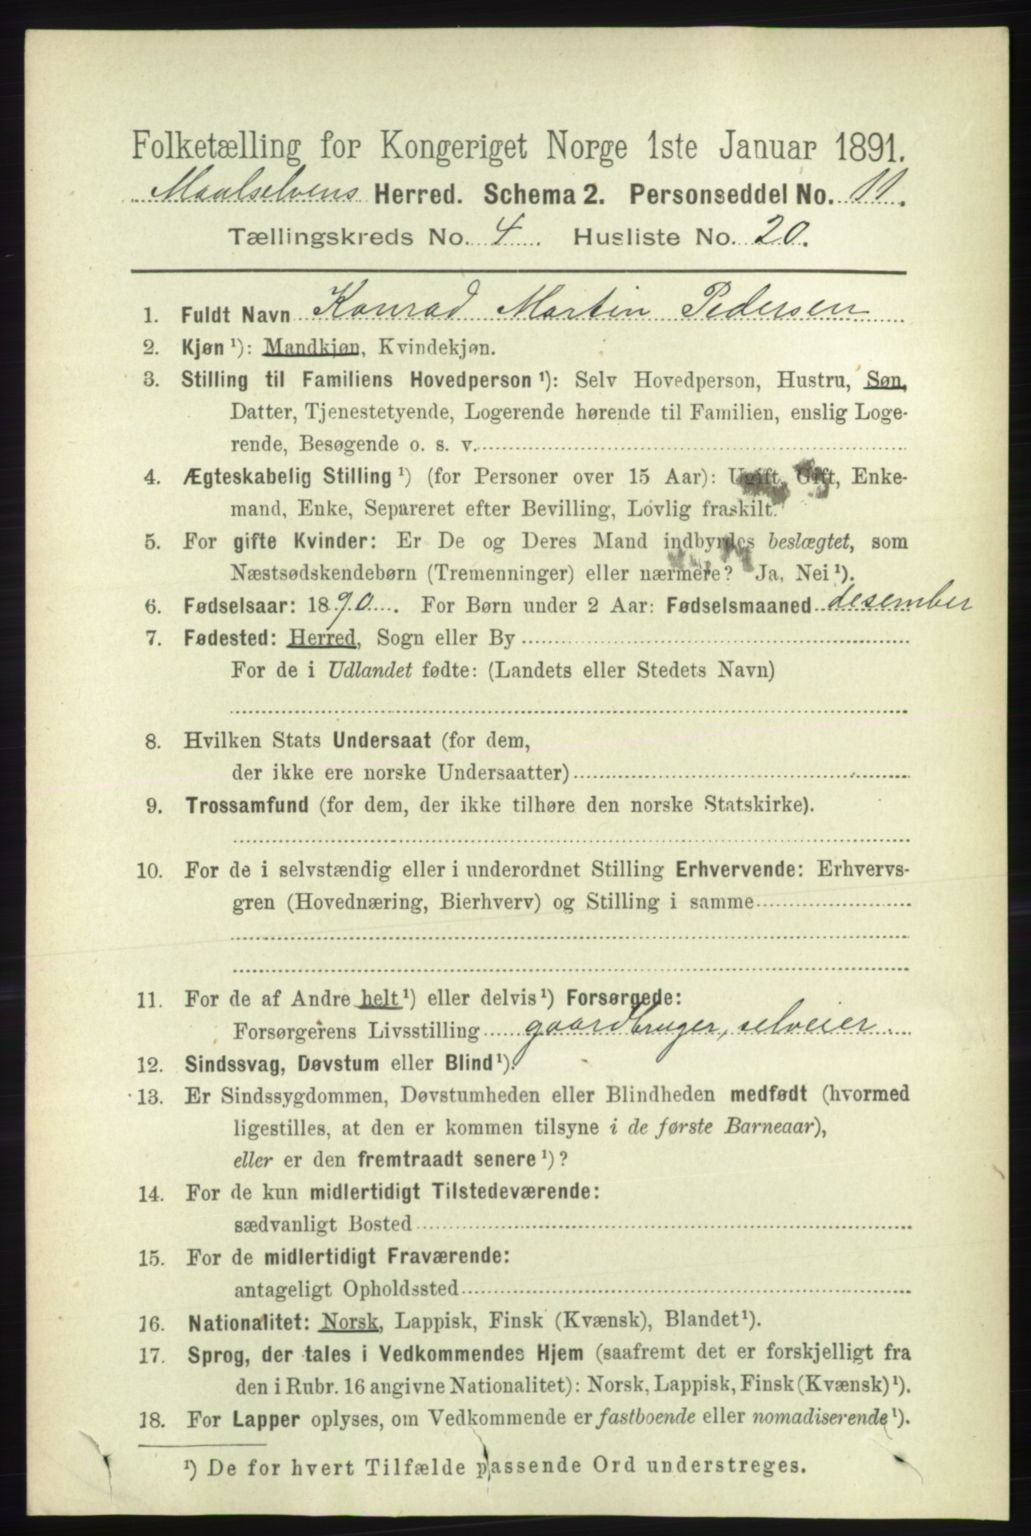 Folketælling for Kongeriget Norge 1ste Januar 1891.
Maalselvens Herred. Schema 2. Personseddel No. 11.
Tællingskreds No. 4. Husliste No. 20.
1. Fuldt Navn Konrad Martin Pedersen
2. Kjøn¹): Mandkjøn, Kvindekjøn.
3. Stilling til Familiens Hovedperson¹): Selv Hovedperson, Hustru, Søn,
Datter, Tjenestetyende, Logerende hørende til Familien, enslig Loge-
rende, Besøgende o. s. v.
4. Ægteskabelig Stilling¹) (for Personer over 15 Aar): Ugift, Gift, Enke-
mand, Enke, Separeret efter Bevilling, Lovlig fraskilt.
5. For gifte Kvinder: Er De og Deres Mand indbyrdes beslægtet, som
Næstsødskendebørn (Tremenninger) eller nærmere? Ja, Nei¹).
6. Fødselsaar: 1890. For Børn under 2 Aar: Fødselsmaaned desember
7. Fødested: Herred, Sogn eller By
For de i Udlandet fødte: (Landets eller Stedets Navn)
8. Hvilken Stats Undersaat (for dem,
der ikke ere norske Undersaatter)
9. Trossamfund (for dem, der ikke tilhøre den norske Statskirke).
10. For de i selvstændig eller i underordnet Stilling Erhvervende: Erhvervs-
gren (Hovednæring, Bierhverv) og Stilling i samme
11. For de af Andre helt¹) eller delvis¹) Forsørgede:
Forsørgerens Livsstilling gaardbruger, selveier
12. Sindssvag, Døvstum eller Blind¹).
13. Er Sindssygdommen, Døvstumheden eller Blindheden medfødt (hvormed
ligestilles, at den er kommen tilsyne i de første Barneaar),
eller er den fremtraadt senere¹)?
14. For de kun midlertidigt Tilstedeværende:
sædvanligt Bosted
15. For de midlertidigt Fraværende:
antageligt Opholdssted
16. Nationalitet: Norsk, Lappisk, Finsk (Kvænsk), Blandet¹).
17. Sprog, der tales i Vedkommendes Hjem (saafremt det er forskjelligt fra
den i Rubr. 16 angivne Nationalitet): Norsk, Lappisk, Finsk (Kvænsk)¹).
18. For Lapper oplyses, om Vedkommende er fastboende eller nomadiserende¹).
¹) De for hvert Tilfælde passende Ord understreges.